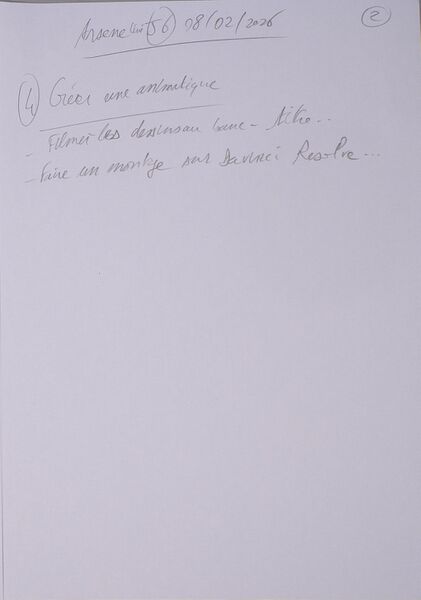 2
Arsene 56 08/02/2026
4 Créer une animatique
- Filmer les dessins au banc-titre...
- Faire un montage sur Davinci Resolve...